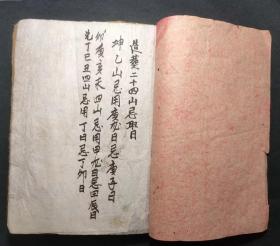 造葬二十四山忌取日
坤乙山忌用庚龙日忌庚子日
卯癸亥未四山忌用甲龙日忌甲辰日
兑丁巳丑四山忌用丁日忌丁卯日